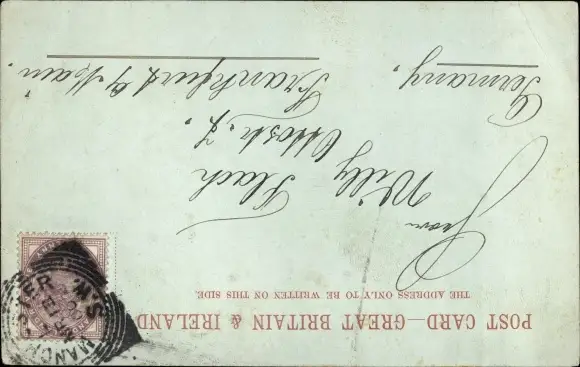 POST CARD—GREAT BRITAIN & IRELAND
THE ADDRESS ONLY TO BE WRITTEN ON THIS SIDE.
Herrn
Willy Flach
Ottostr. 7.
Frankfurt a/Main.
Germany.
MANCHESTER
S.W.